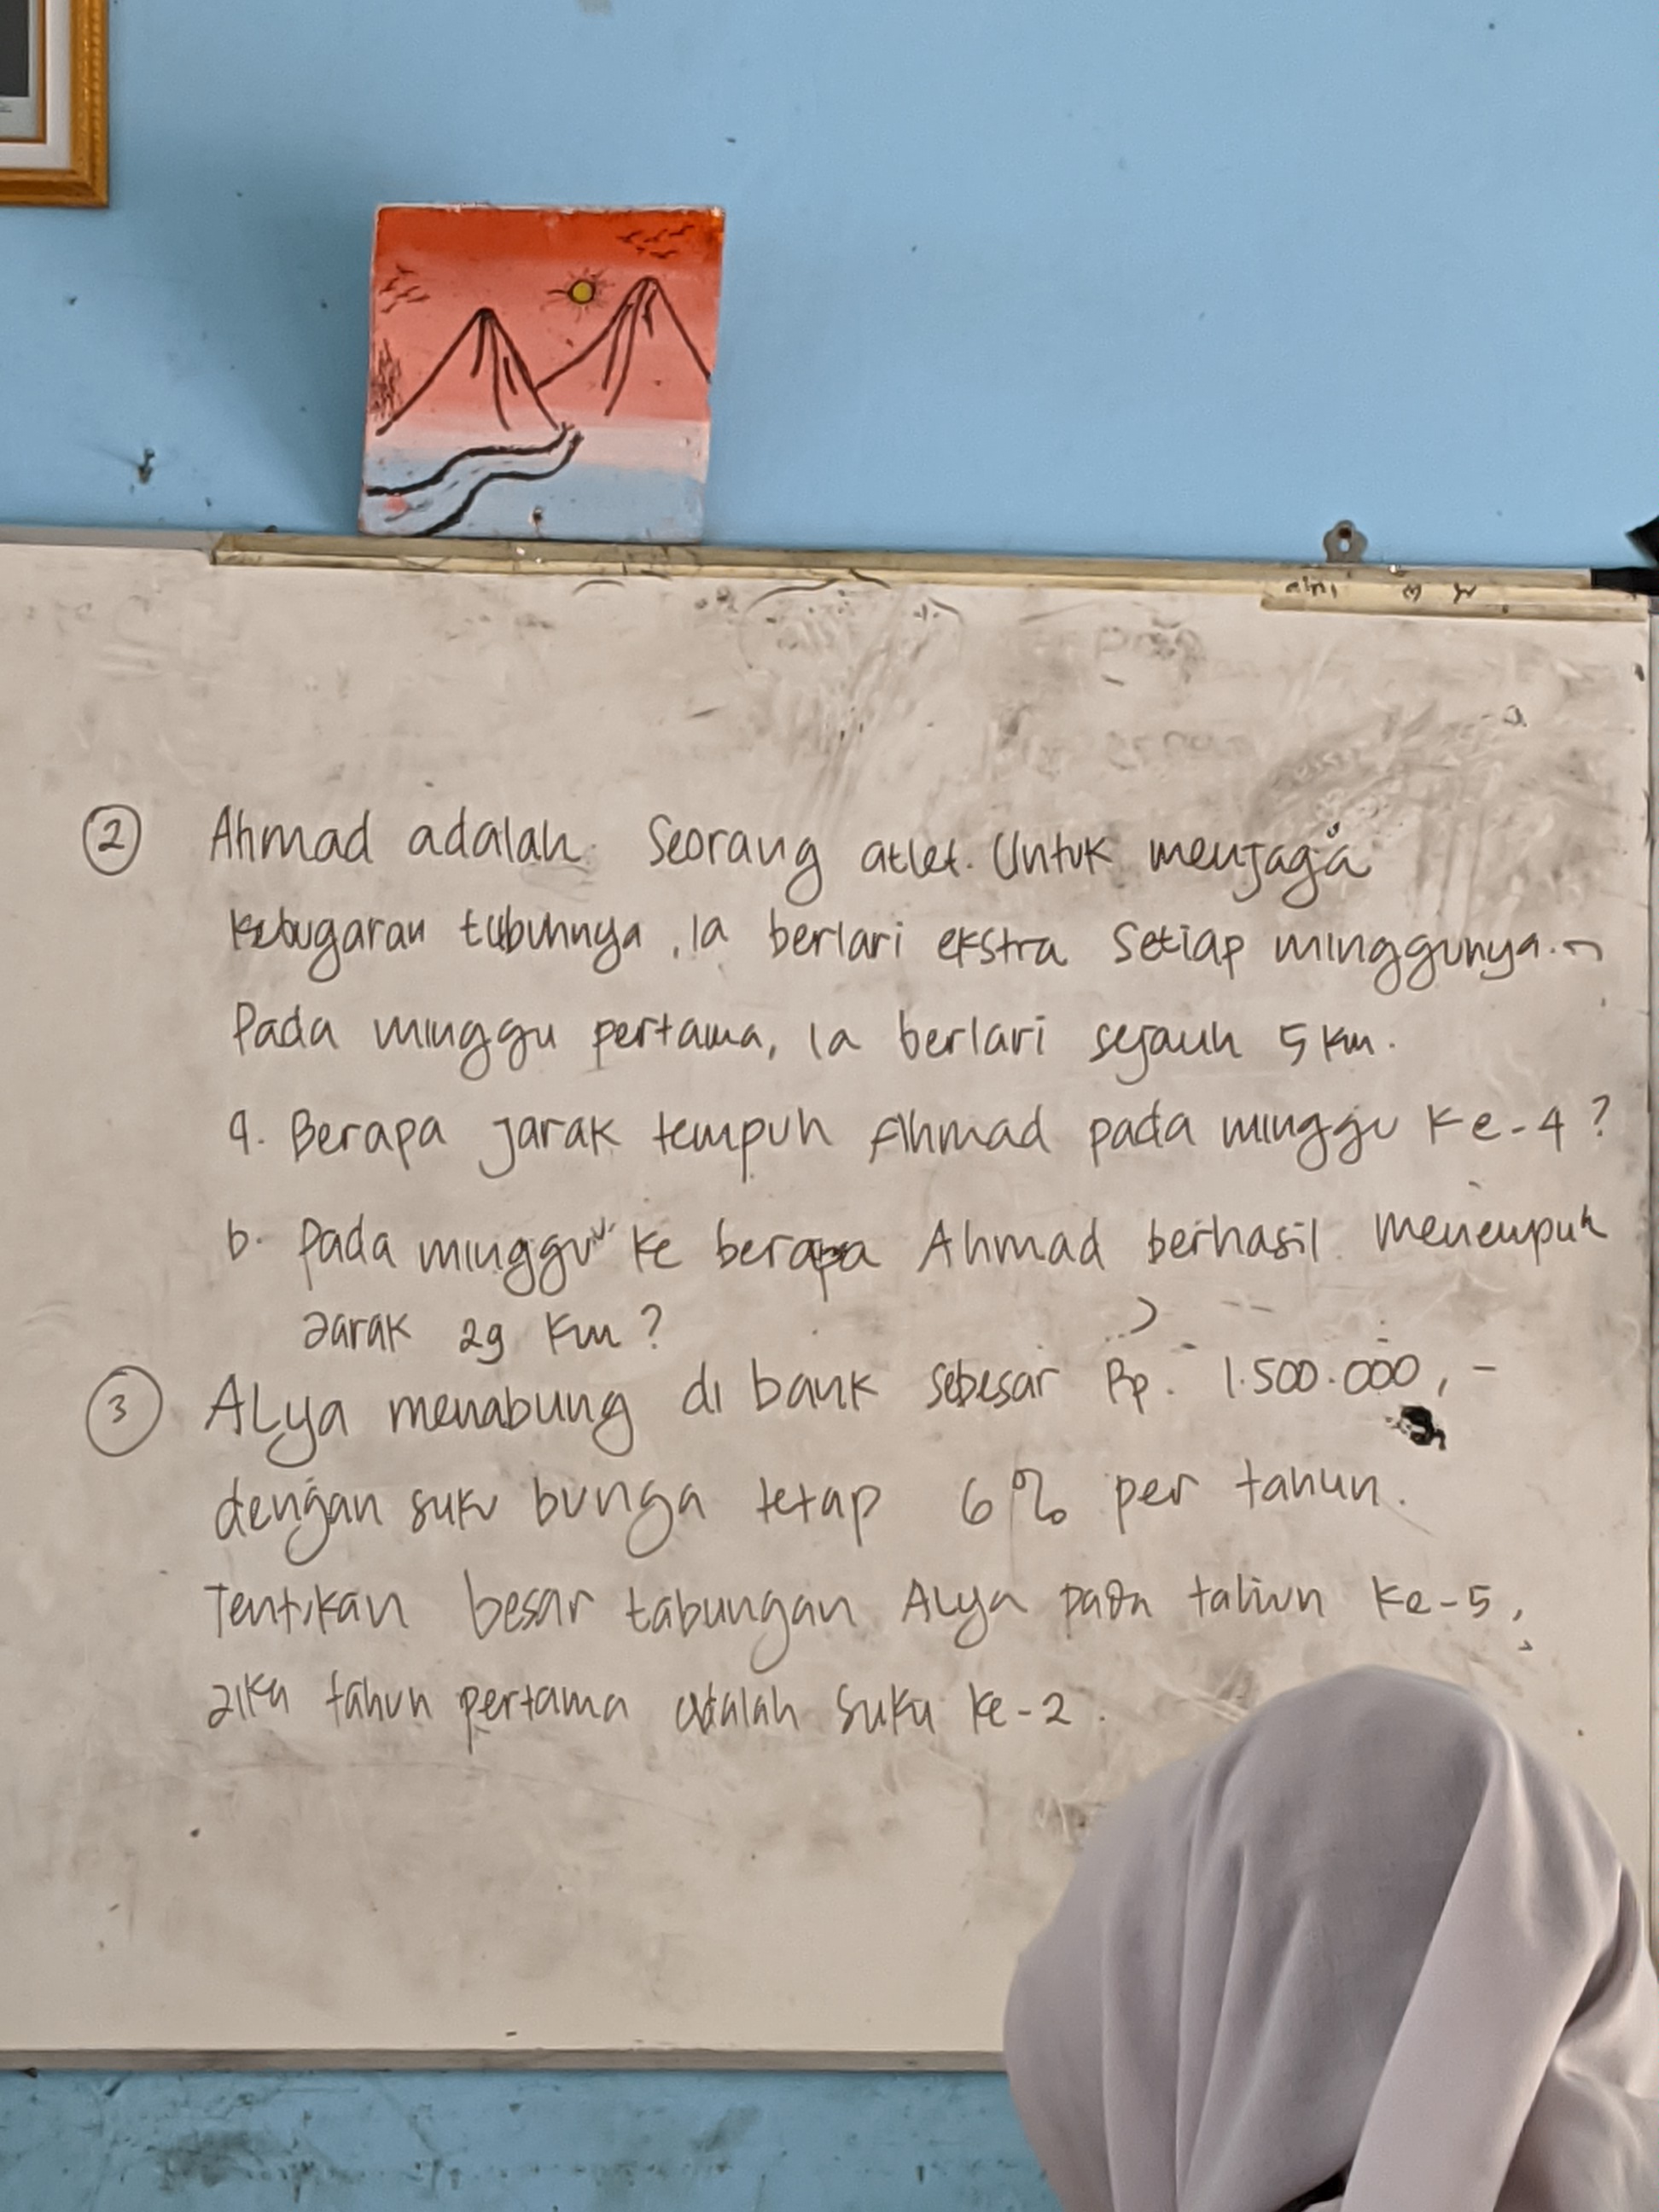 2 Ahmad adalah seorang atlet. Untuk menjaga
kebugaran tubuhnya, ia berlari ekstra setiap minggunya.
Pada minggu pertama, ia berlari sejauh 5 km.
a. Berapa jarak tempuh Ahmad pada minggu ke-4?
b. Pada minggu ke berapa Ahmad berhasil menempuh
Jarak 29 km?
3 Alya menabung di bank sebesar Rp. 1.500.000,-
dengan suku bunga tetap 6% per tahun.
Tentukan besar tabungan Alya pada tahun ke-5,
Jika tahun pertama adalah suku ke-2.